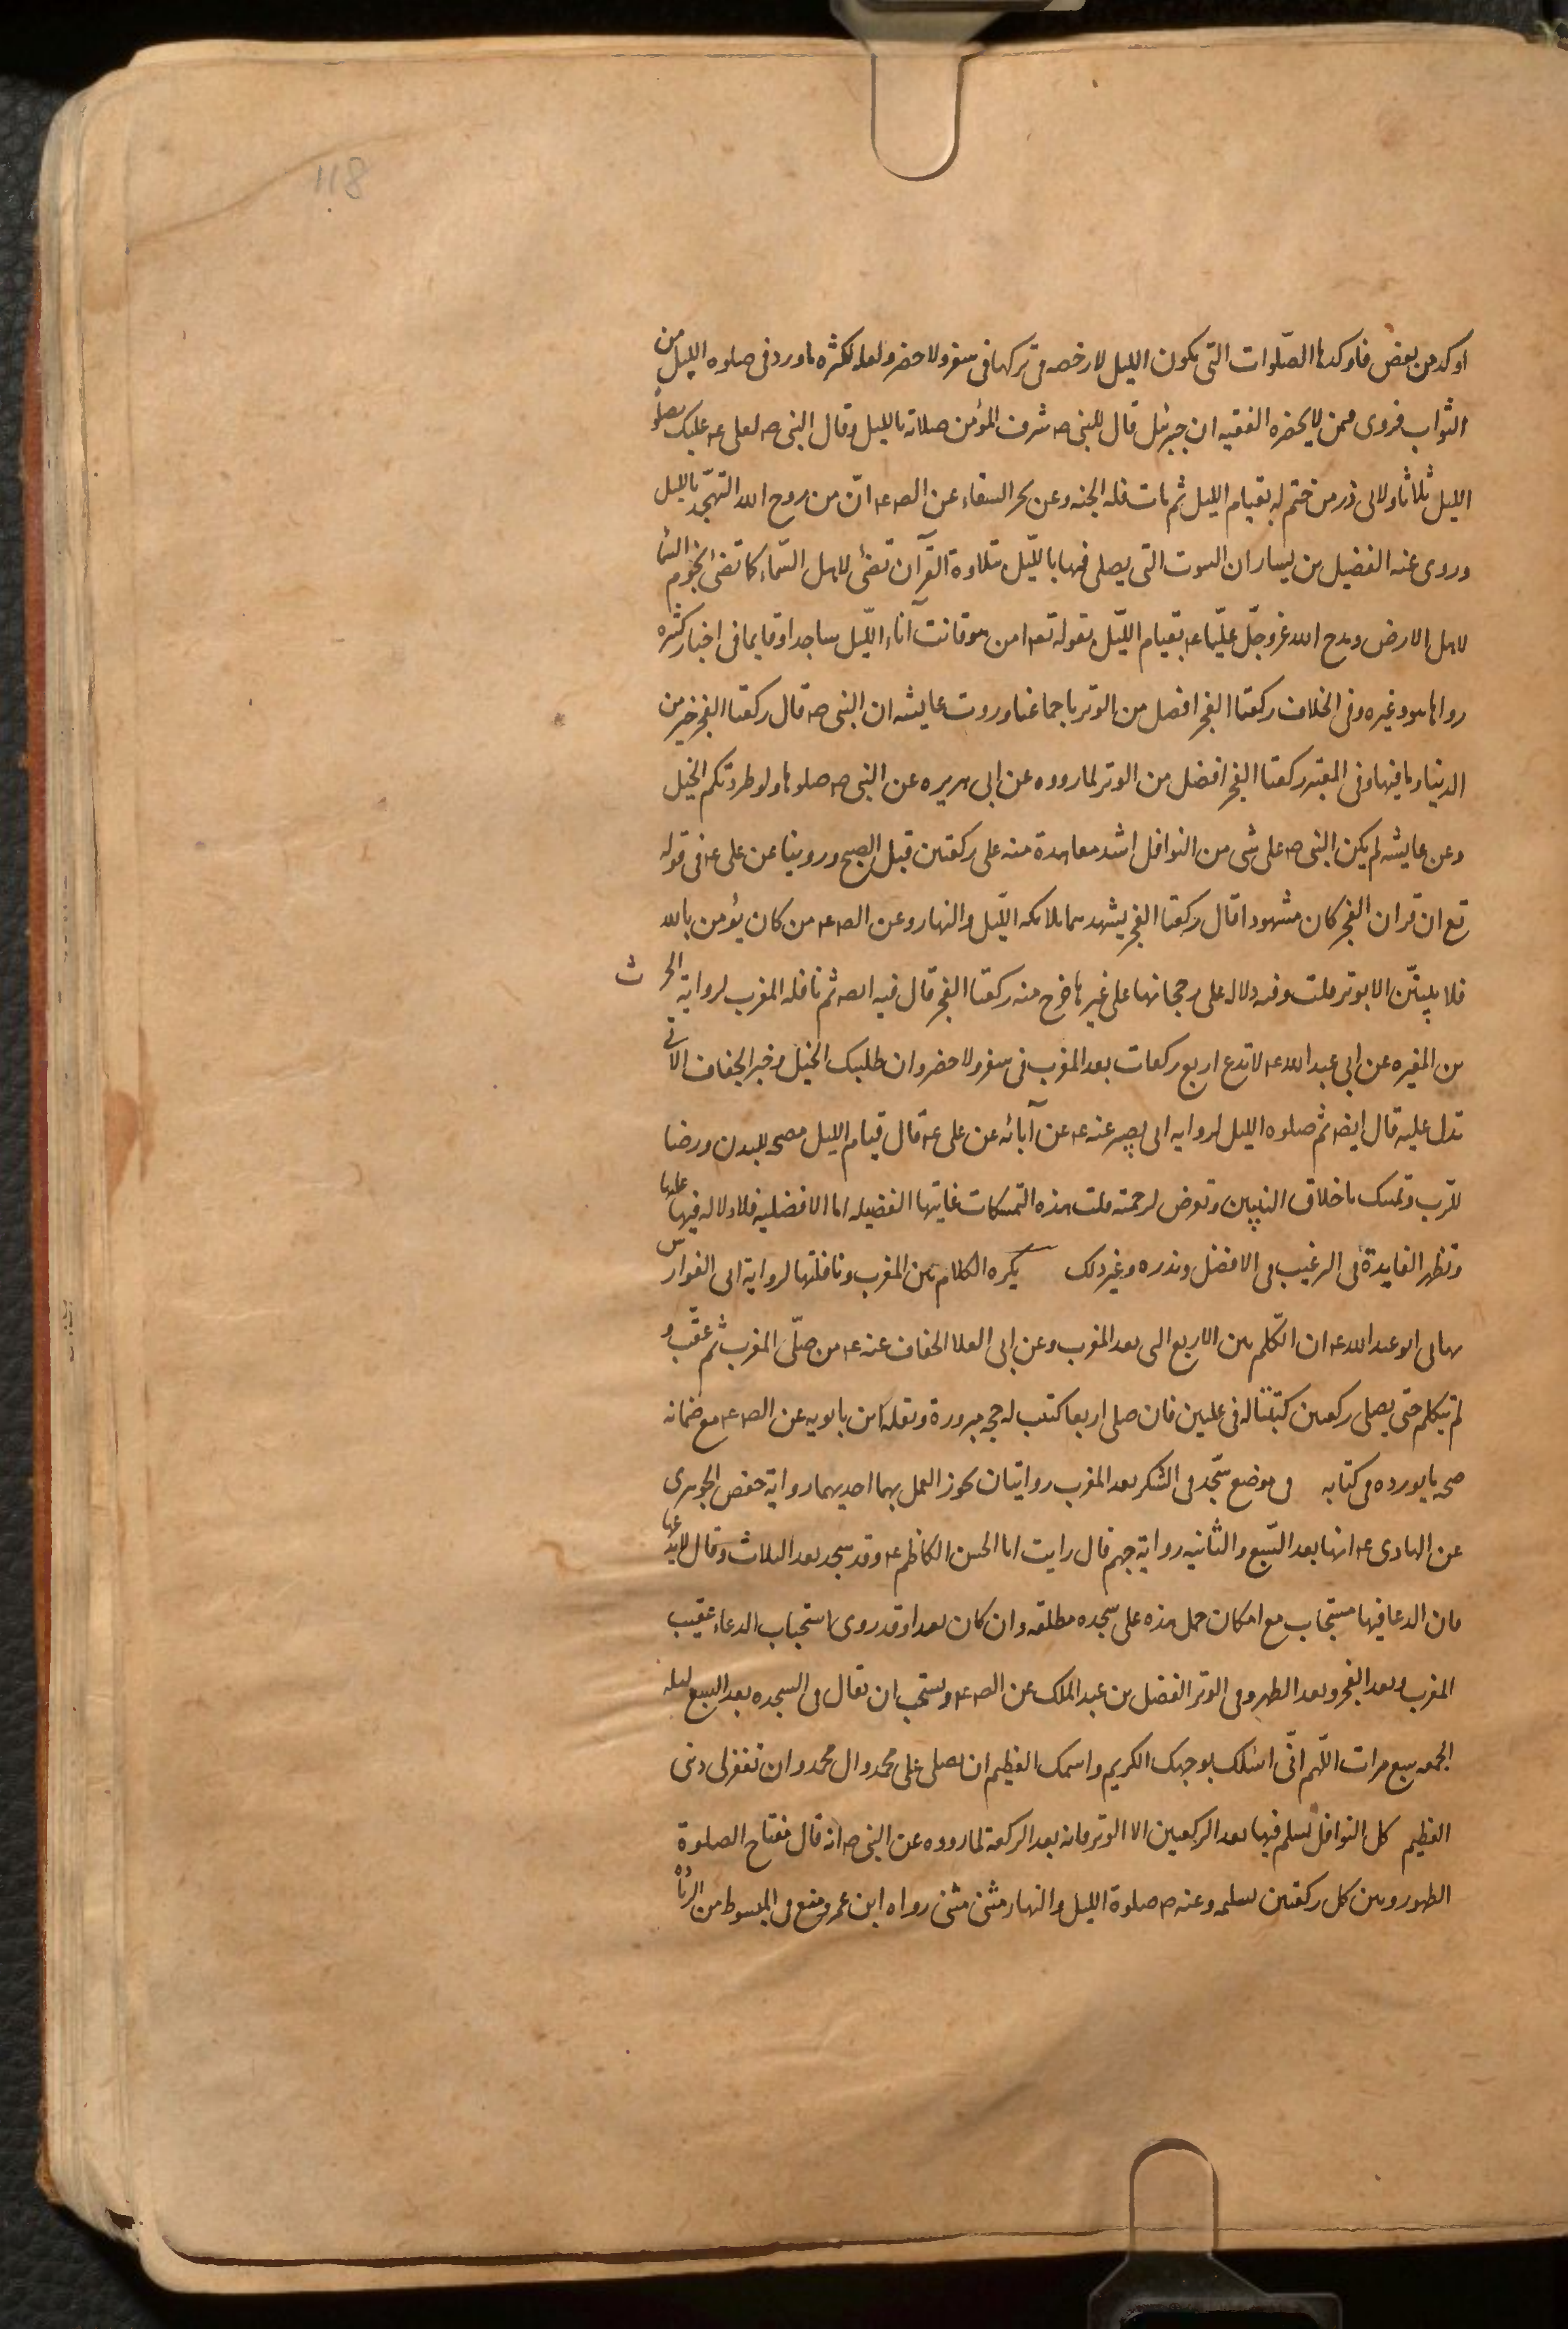 118
اوكد من بعض فاوكدها الصّلوات التى يكون الليل لا رخصه فى تركها فى سفر ولا حضر ولعله لكثره ما ورد فى صلوه الليل من
الثواب فروى فى من لا يحضره الفقيه ان جبرئيل قال للنبى صه شرف المؤمن صلاته بالليل وقال النبى صه لعلى عه عليك بصلوة
الليل ثلاثا ولابى ذر من ختم له بقيام الليل ثم مات فله الجنه وعن بحر السقاء عن الصه عه انّ من روح الله التهجّد بالليل
وروى عنه الفضيل بن يسار ان البيوت التى يصلى فيها بالليّل بتلاوة القرآن تضئ لاهل السّماء كما تضئ نجوم السّما
لاهل الارض ومدح الله عزوجلّ عليّا عه بقيام الليّل بقوله تعه امن هو قانت آناء الليّل ساجدا وقايما فى اخبار كثيره
رواها هو وغيره وفى الخلاف ركعتا الفجر افضل من الوتر باجماعنا وروت عايشه ان النبى صه قال ركعتا الفجر خير من
الدنيا وما فيها وفى المعتبر ركعتا الفجر افضل من الوتر لما رووه عن ابى هريره عن النبى صه صلوها ولو طردتكم الخيل
وعن عايشه لم يكن النبى صه على شى من النوافل اشد معاهدة منه على ركعتين قبل الصبح وروينا عن على عه فى قوله
تع ان قران الفجر كان مشهودا قال ركعتا الفجر يشهدهما ملائكه الليّل والنهار وعن الصه عه من كان يؤمن بالله
فلا يبيتنّ الا بوتر قلت وفيه دلاله على رجحانها على غيرها خرج منه ركعتا الفجر قال فيه ايضه ثم نافله المغرب لرواية الحرث
بن المغيره عن ابى عبد الله عه لا تدع اربع ركعات بعد المغرب فى سفر ولا حضر وان طلبتك الخيل وخبر الخفاف الاتى
تدل عليه قال ايضه ثم صلوه الليل لروايه ابى بصير عنه عه عن آبائه عن على عه قال قيام الليل مصحه للبدن ورضا
للرّب وتمسك باخلاق النبيين وتعرض لرحمته قلت هذه التمسكات غايتها الفضيله اما الافضليه فلا دلاله فيها عليها
وتظهر الفايدة فى الرغيب فى الافضل ونذره وغير ذلك يكره الكلام بين المغرب ونافلتها لرواية ابى الفوارس
نهانى ابو عبد الله عه ان اتكلم بين الاربع التى بعد المغرب وعن ابى العلا الخفاف عنه عه من صلّى المغرب ثم عقّب و
لم يتكلم حتى يصلى ركعتين كتبتا له فى عليين فان صلى اربعا كتبت له حجه مبرورة ونقله ابن بابويه عن الصه عه مع ضمانه
صحه ما يورده فى كتابه فى موضع سجّدتى الشكر بعد المغرب روايتان يجوز العمل بهما احديهما رواية حفص الجوهرى
عن الهادى عه انها بعد السّبع والثانيه رواية جهم قال رايت ابا الحسن الكاظم عه وقد سجد بعد الثلاث وقال لا تدعها
فان الدعا فيها مستجاب مع امكان حمل هذه على سجده مطلقه وان كان بعيدا وقد روى استحباب الدعاء عقيب
المغرب وبعد الفجر وبعد الظهر وفى الوتر الفضل بن عبد الملك عن الصه عه ويستحب ان يقال فى السجده بعد السبع ليله
الجمعه سبع مرات اللّهم انّى اسئلك بوجهك الكريم واسمك العظيم ان تصلى على محمد وال محمد وان تغفر لى ذنبى
العظيم كل النوافل يسلم فيها بعد الركعتين الا الوتر فانه بعد الركعة لما رووه عن النبى صه انه قال مفتاح الصلوة
الطهور وبين كل ركعتين تسليمه وعنه صه صلوة الليل والنهار مثنى مثنى رواه ابن عمر ومنع فى المبسوط من الزيادة